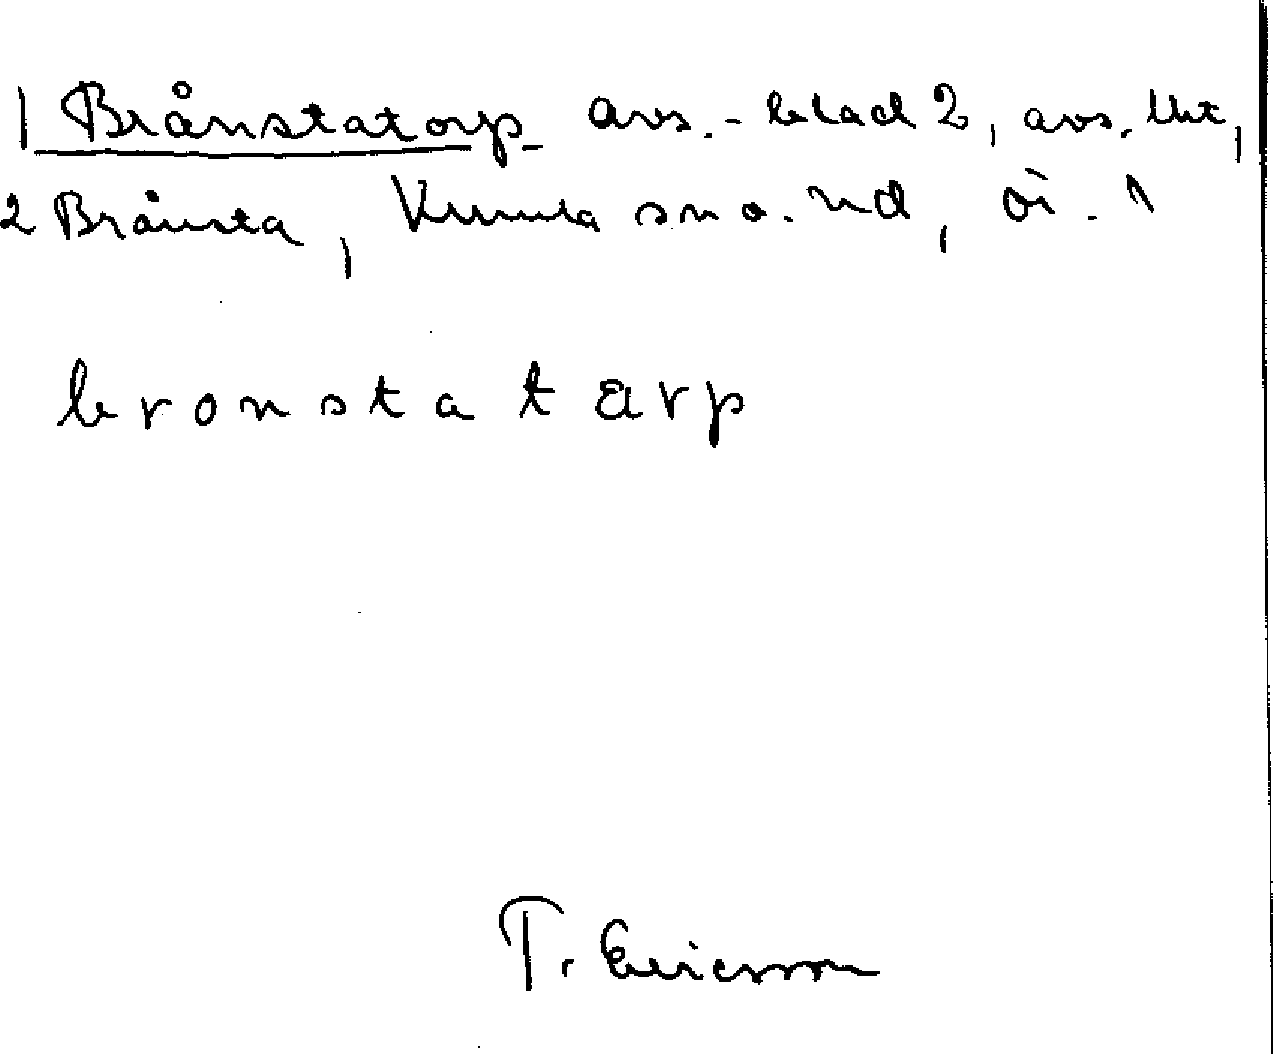 1 Brånstatorp avs.-blad 2, avs. lht,
2 Brånsta, Kumla sn o. hd, ör. 1
bronstatarp
T. Ericsson